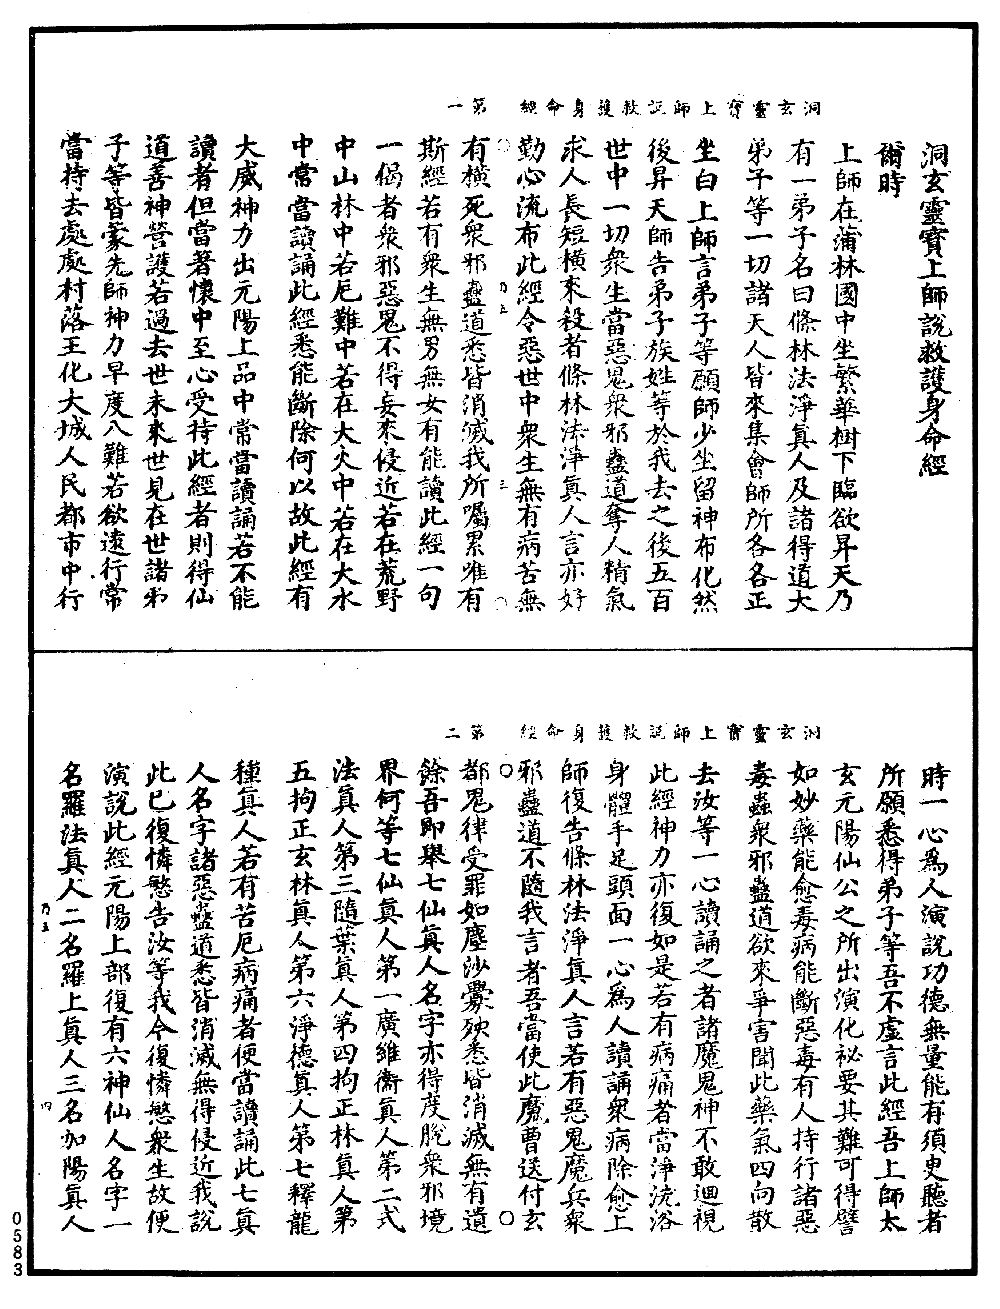 洞玄靈寶上師說救護身命經　第一
洞玄靈寶上師說救護身命經
爾時
上師在蒲林國中坐繁華樹下臨欲昇天乃
有一弟子名曰條林法淨真人及諸得道大
弟子等一切諸天人皆來集會師所各各正
坐白上師言弟子等願師少坐留神布化然
後昇天師告弟子族姓等於我去之後五百
世中一切衆生當惡鬼衆邪蠱道奪人精氣
求人長短橫來殺者條林法淨真人言亦好
勤心流布此經令惡世中衆生無有病苦無
有橫死衆邪蠱道悉皆消滅我所囑累唯有
斯經若有衆生無男無女有能讀此經一句
一偈者衆邪惡鬼不得妄來侵近若在荒野
中山林中若厄難中若在大火中若在大水
中常當讀誦此經悉能斷除何以故此經有
大威神力出元陽上品中常當讀誦若不能
讀者但當著懷中至心受持此經者則得仙
道善神營護若過去世未來世見在世諸弟
子等皆蒙先師神力早度八難若欲遠行常
當持去處處村落王化大城人民都市中行
洞玄靈寶上師說救護身命經　第二
時一心爲人演說功德無量能有須臾聽者
所願悉得弟子等吾不虛言此經吾上師太
玄元陽仙公之所出演化祕要其難可得譬
如妙藥能愈毒病能斷惡毒有人持行諸惡
毒蟲衆邪蠱道欲來爭害聞此藥氣四向散
去汝等一心讀誦之者諸魔鬼神不敢迴視
此經神力亦復如是若有病痛者當淨洗浴
身體手足頭面一心爲人讀誦衆病除愈上
師復告條林法淨真人言若有惡鬼魔兵衆
邪蠱道不隨我言者吾當使此魔曹送付玄
都鬼律受罪如塵沙釁殃悉皆消滅無有遺
餘吾即舉七仙真人名字亦得度脫衆邪境
界何等七仙真人第一廣維衛真人第二式
法真人第三隨葉真人第四拘正林真人第
五拘正玄林真人第六淨德真人第七釋龍
種真人若有苦厄病痛者便當讀誦此七真
人名字諸惡蠱道悉皆消滅無得侵近我說
此已復憐愍告汝等我今復憐愍衆生故便
演說此經元陽上部復有六神仙人名字一
名羅法真人二名羅上真人三名加陽真人
乃五
三
乃五
四
0583